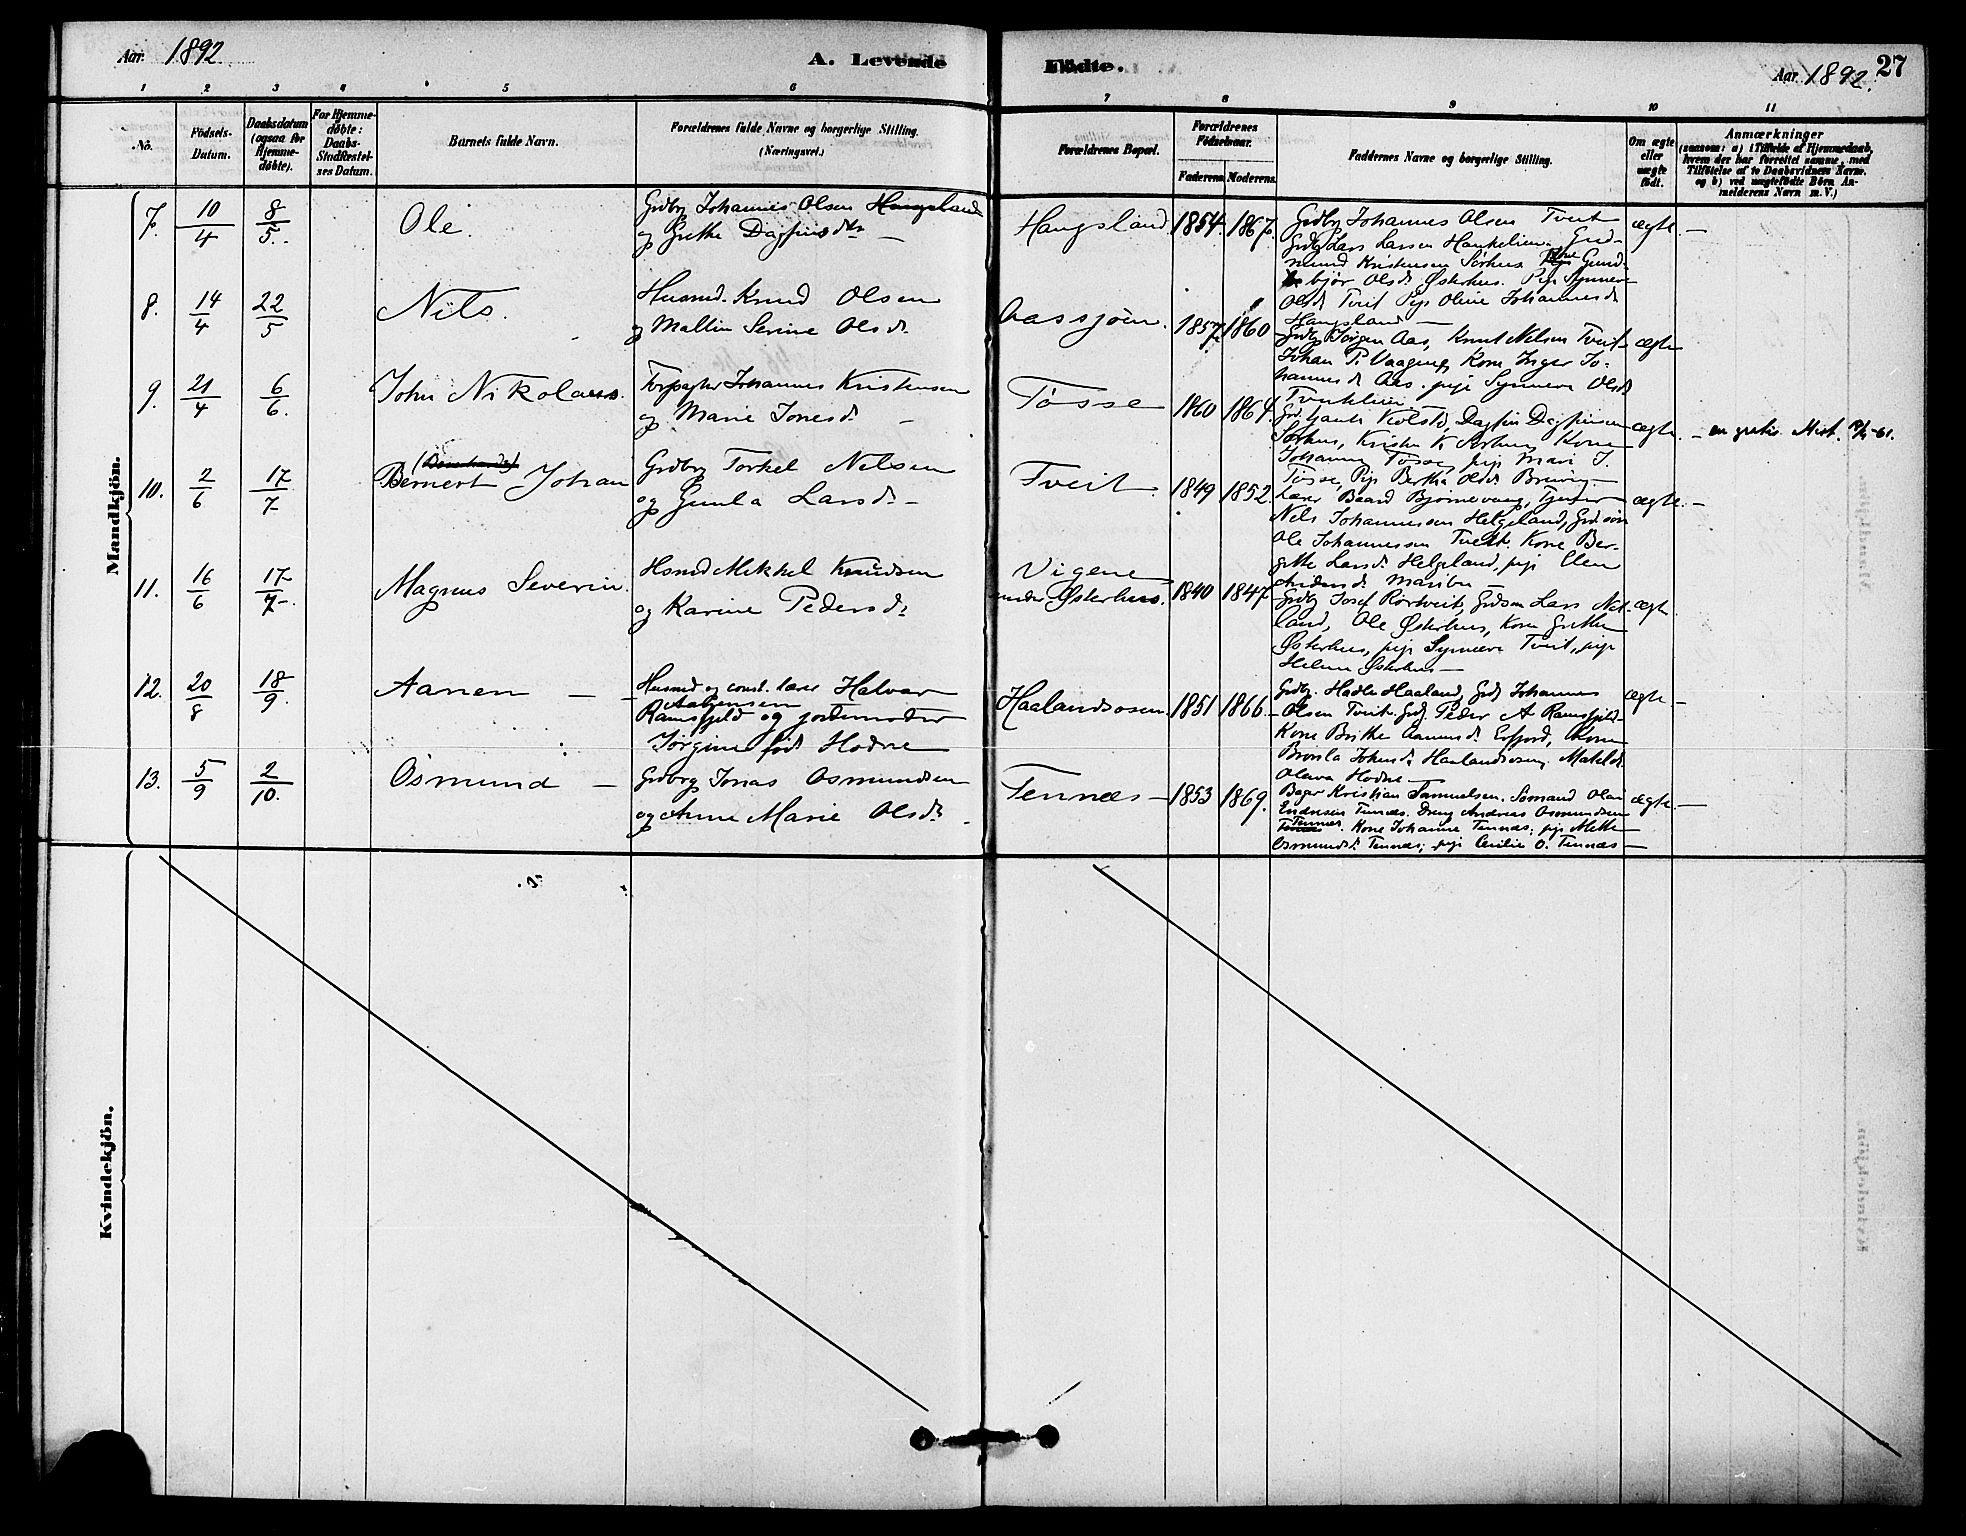 Aar. 1892.
A. Levende
Födte.
Aar 1892. 27
1 2 3 4 5 6
7 8 9 10 11
No.
Födsels-Datum.
Daabsdatum (ogsaa for Hjemme-döbte).
For Hjemme-döbte: Daabs-Stadfæstel-ses Datum.
Barnets fulde Navn.
Forældrenes fulde Navne og borgerlige Stilling.
(Næringsvei.)
Forældrenes Bopæl.
Forældrenes Födselsaar.
Faderens Moderens
Faddernes Navne og borgerlige Stilling.
Om ægte eller uægte födt.
Anmærkninger
(saasom: a) i Tilfælde af Hjemmedaab,
hvem der har forrettet samme, med
Tilföielse af to Daabsvidners Navne.
og b) ved uægtefödte Börn An-
melderens Navn m. V.)
Mandkjön.
7. 10/4 8/5. Ole.
Grdbr Johannes Olsen Haugsland
og Grethe Dagfinsdtr
Haugsland 1854. 1867. ægte.
Grdbr Johannes Olsen Tveit
Grdbr Lars Larsen Haukelien. Gud-
mund Kristensen Sørhus. Gund-
bjør Olsdr Østerhus. Pige Synneve
Olsdr Tveit Pige Oline Johannesdr
Haugsland
8. 14/4 22/5 Nils.
Husmd. Knud Olsen
og Mallin Serine Olsdr.
Aassjøen. 1857. 1860 ægte
Grdbr Jørgen Aas, Knut Nilsen Tveit
Johan P. Vaageng, Kone Inger Jo-
hannesdr Aas. pige Synneve Olsdr
9. 21/4 6/6. John Nikolaus.
Forpagter Johannes Kristensen
og Marie Jonesdr
Tøsse 1860 1864. ægte.
Kolstø, Dagfin Dagfinsen
Sørhus, Kristen K Sørhus, Kone
Johanne Tøsse, pige Mari J.
Tøsse, Pige Bertha Olsdr
10. 2/6 17/7 Bernert Johan
Grdbr Torkel Nilsen
og Gunla Larsdr
Tveit. 1849 1852. ægte.
Lærer Baard Bjørnevaag, Tjener
Nels Johannessen Helgeland, Grdsøn
Ole Johannessen Tveit. Kone Ber-
gitte Larsdr Helgeland, pige Elen
Andersdr Maribu
11. 16/6 17/7. Magnus Severin.
Hsmd Mikkel Knudsen
og Karine Pedersdr
Vigene
under Østerhus. 1840 1847 ægte.
Grdbr Josef Rørtveit, Grdsøn Lars Nes-
land, Ole Østerhus, Kone Grethe
Østerhus, pige Synneve Tveit, pige
Helene Østerhus
12. 20/8 18/9. Aanen
Husmd og const. lærer Halvor
Aadnesen
Ramsfjeld og jordemoder
Jørgine født Hodne
Haalandsosen. 1851 1866. ægte
Grdbr. Hadle Haaland, Grdbr Johannes
Olsen Tveit. Grdbr Peder A Ramsfjeld
Kone Brithe Aamundsdr Erfjord, Kone
Brønla Johnsdr Haalandsosen. Matilde
Olava Hodne
13. 5/9 2/10. Osmund
Grdbrg Jonas Osmundsen
og Anne Marie Olsdr.
Tennæs 1853 1869. ægte
Bager Kristian Samuelsen. Sømand Olai
Endresen Tennæs. Dreng Andreas Osmundsen
Tennæs. Kone Johanne Tennæs; pige Mette
Osmundsdr Tennæs; pige Cecilie O. Tennæs
Kvindekjön.